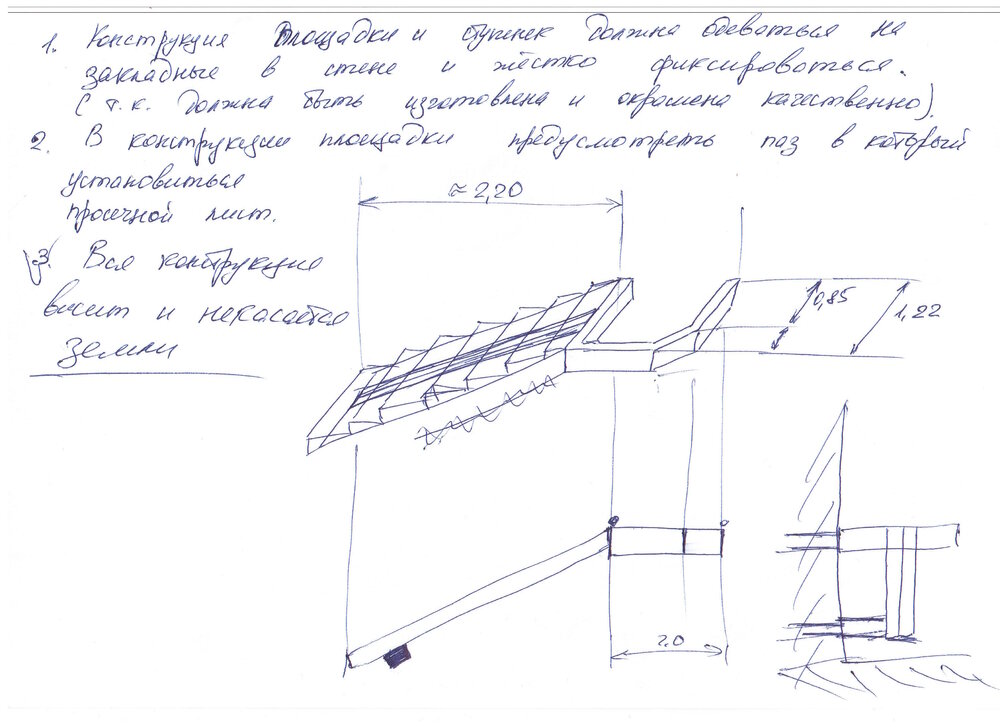 1. Конструкция площадки и ступенек должна одеваться на
закладные в стене и жёстко фиксироваться.
(т.к. должна быть изготовлена и окрашена качественно).
2. В конструкции площадки предусмотреть паз в который
установиться
просечной лист.
3. Вся конструкция
висит и некасается
земли
≈ 2,20
0,85
1,22
2,0